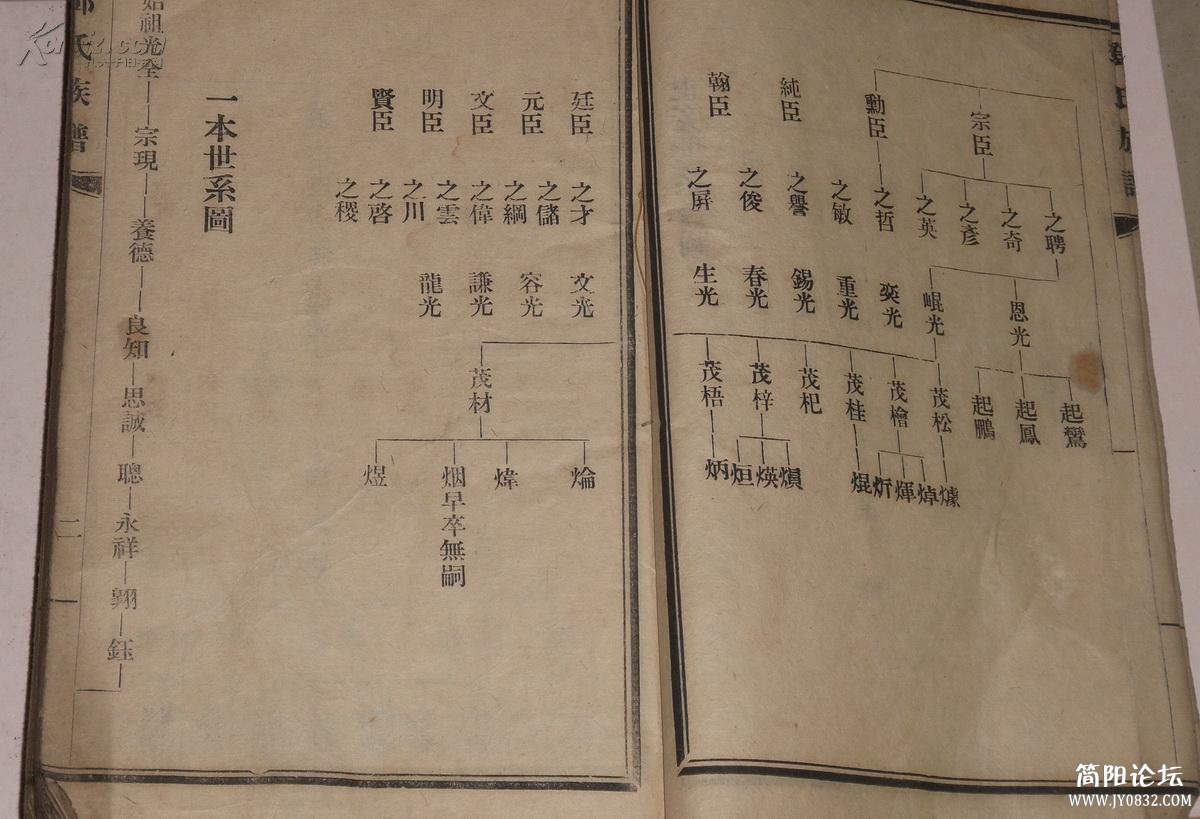 宗臣
勳臣
純臣
翰臣
之聘
之奇
之彥
之英
之哲
之敏
之譽
之俊
之屏
恩光
崐光
奕光
重光
錫光
春光
生光
起鸞
起鳳
起鵬
茂松
茂檜
茂桂
茂杞
茂梓
茂梧
㷿
焯
煇
炘
焜
熉
煐
烜
炳
廷臣
元臣
文臣
明臣
賢臣
之才
之儲
之綱
之偉
之雲
之川
之啓
之稷
文光
容光
謙光
龍光
茂材
煒
烟早卒無嗣
煜
一本世系圖
始祖光全
宗現
養德
良知
思誠
聰
永祥
翱
鈺
氏族譜
二
简阳论坛
WWW.JY0832.COM